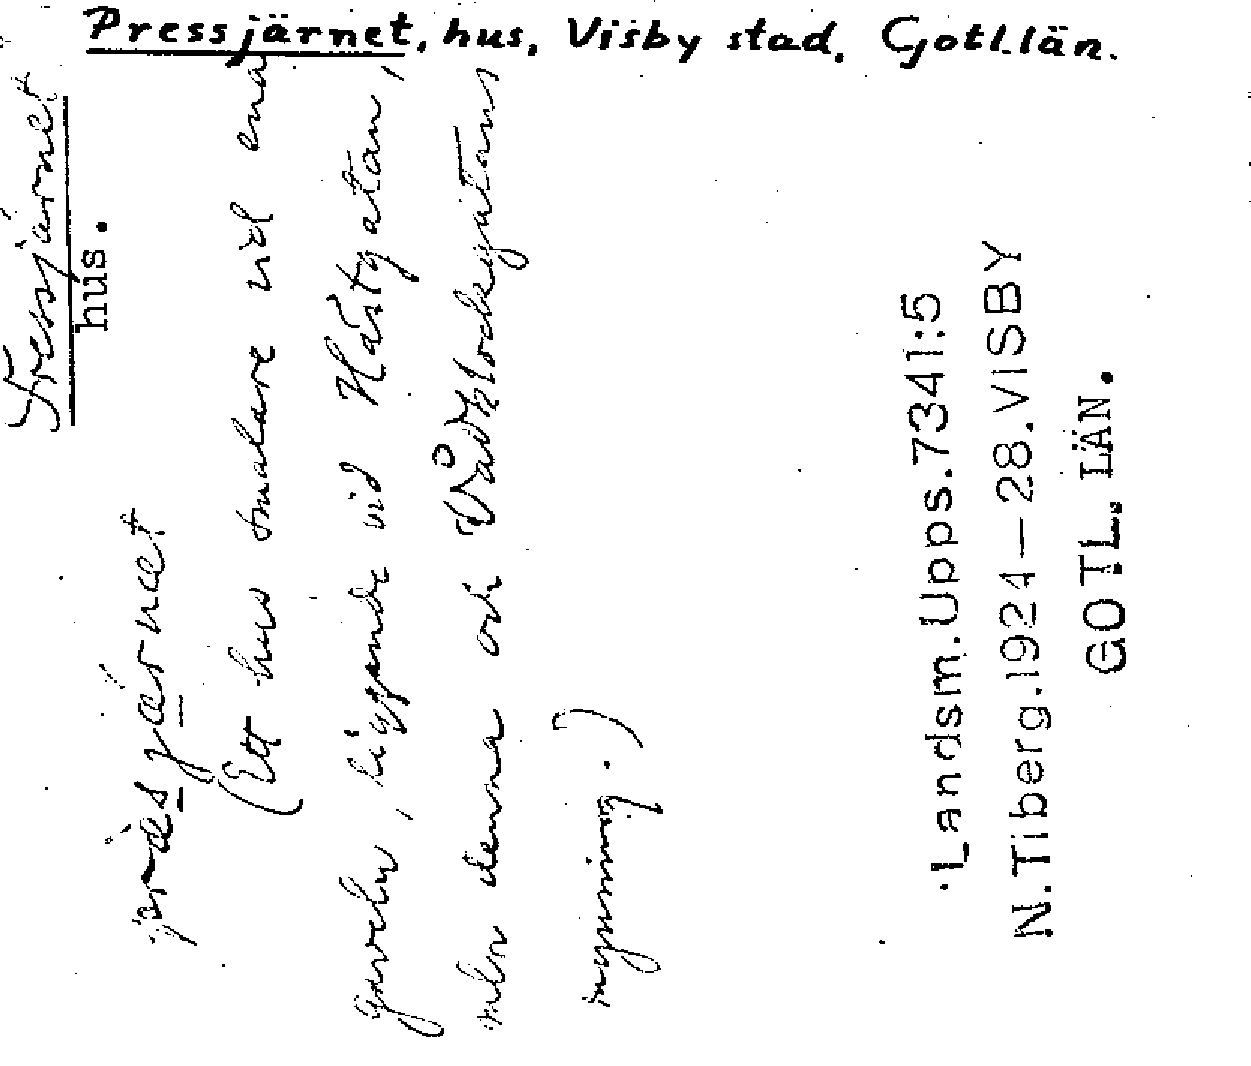 Pressjärnet, hus, Visby stad, Gotl.län.
Pressjärnet
hus.
präsjärnet
(Ett hus smalare vid ena
gaveln, liggande vid Hästgatan,
mln denna och Vårdklockegatans
mynning.)
Landsm.Upps.7341:5
N.Tiberg.1924-28.VISBY
GOTL. LÄN.